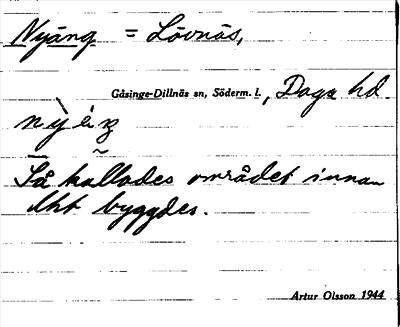 Nyäng = Lövnäs,
Gåsinge-Dillnäs sn, Söderm. l., Daga hd
Så kallades området innan
dht byggdes.
Artur Olsson 1944